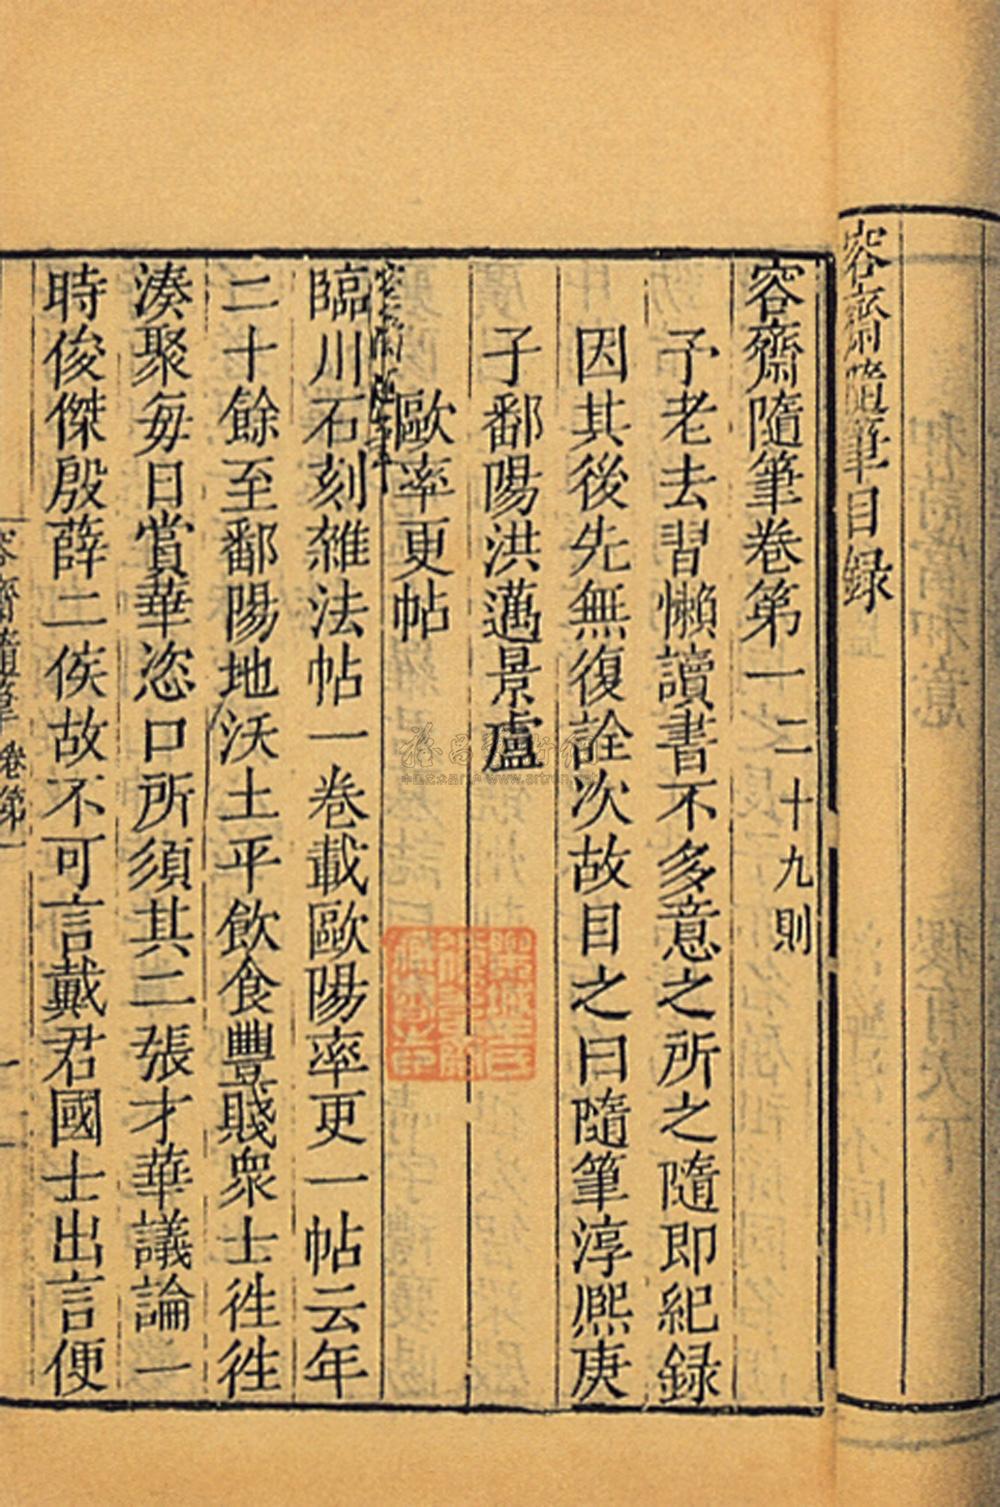 容齋隨筆目録
容齋隨筆卷第一 二十九則
予老去習懶讀書不多意之所之隨即紀録
因其後先無復詮次故目之曰隨筆淳熈庚
子鄱陽洪邁景盧
歐率更帖
臨川石刻雜法帖一卷載歐陽率更一帖云年
二十餘至鄱陽地沃土平飲食豐賤衆士徃徃
湊聚每日賞華恣口所須其二張才華議論一
時俊傑殷薛二侯故不可言戴君國士出言便
容齋隨筆 卷第一